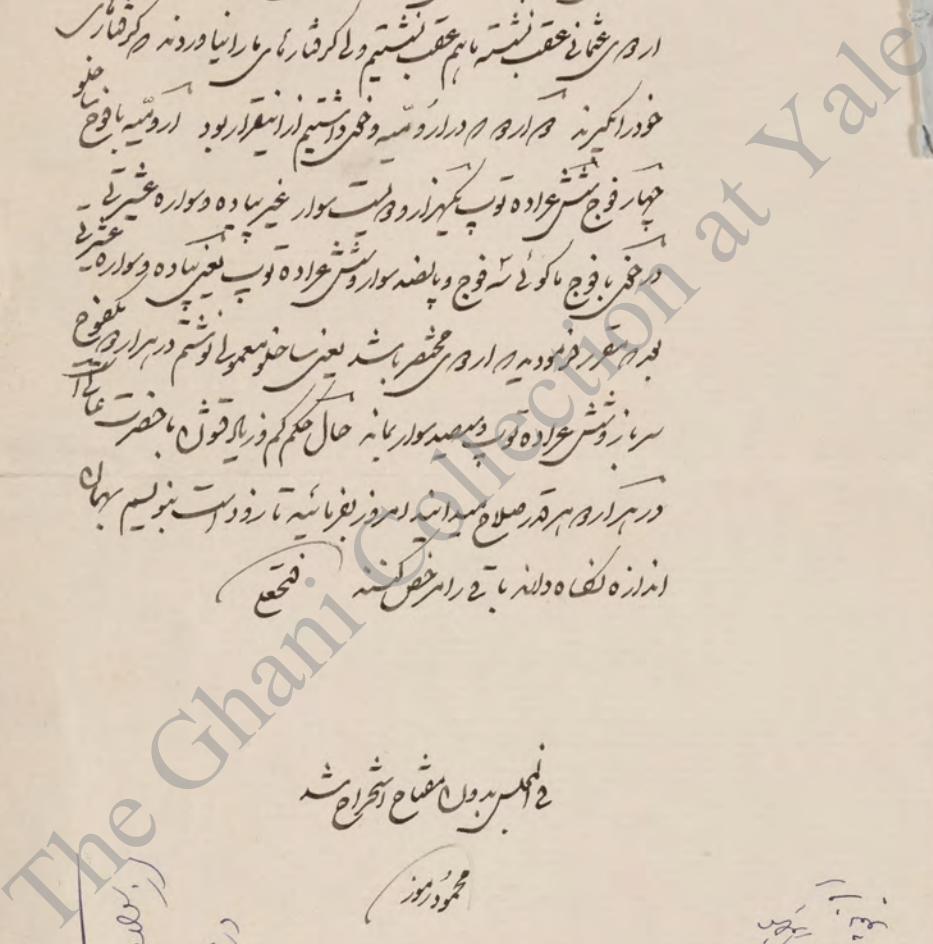 اردوی عثمانی عقب نشسته ما هم عقب نشستیم ولی گرفتارهای ما را نیاوردند که گرفتارهای
خود را بگیرند دو اردو که در ارومیه و خوی داشتیم از اینقرار بود ارومیه با فوج ساخلو
چهار فوج شش عراده توپ یکهزار و دویست سوار غیر پیاده و سواره عشیرتی
در خوی با فوج ماکوئی سه فوج و پانصد سوار و شش عراده توپ بغیر پیاده و سواره عشیرتی
بعد مقرر فرمودید که اردوی مختصر باشد یعنی ساخلو معمولی نوشتم در هر اردو یکفوج
سرباز و شش عراده توپ و سیصد سوار بماند حال حکم کم و زیاد قشون با حضرت عالی است
در هر اردو هر قدر صلاح میدانید امروز بفرمائید تا زود است بنویسم بهمان
اندازه نگاه دارند باقی را مرخص کنند فتحعلی
فی المجلس بدون مفتاح استخراج شد
محمود رموز
The Ghani Collection at Yale